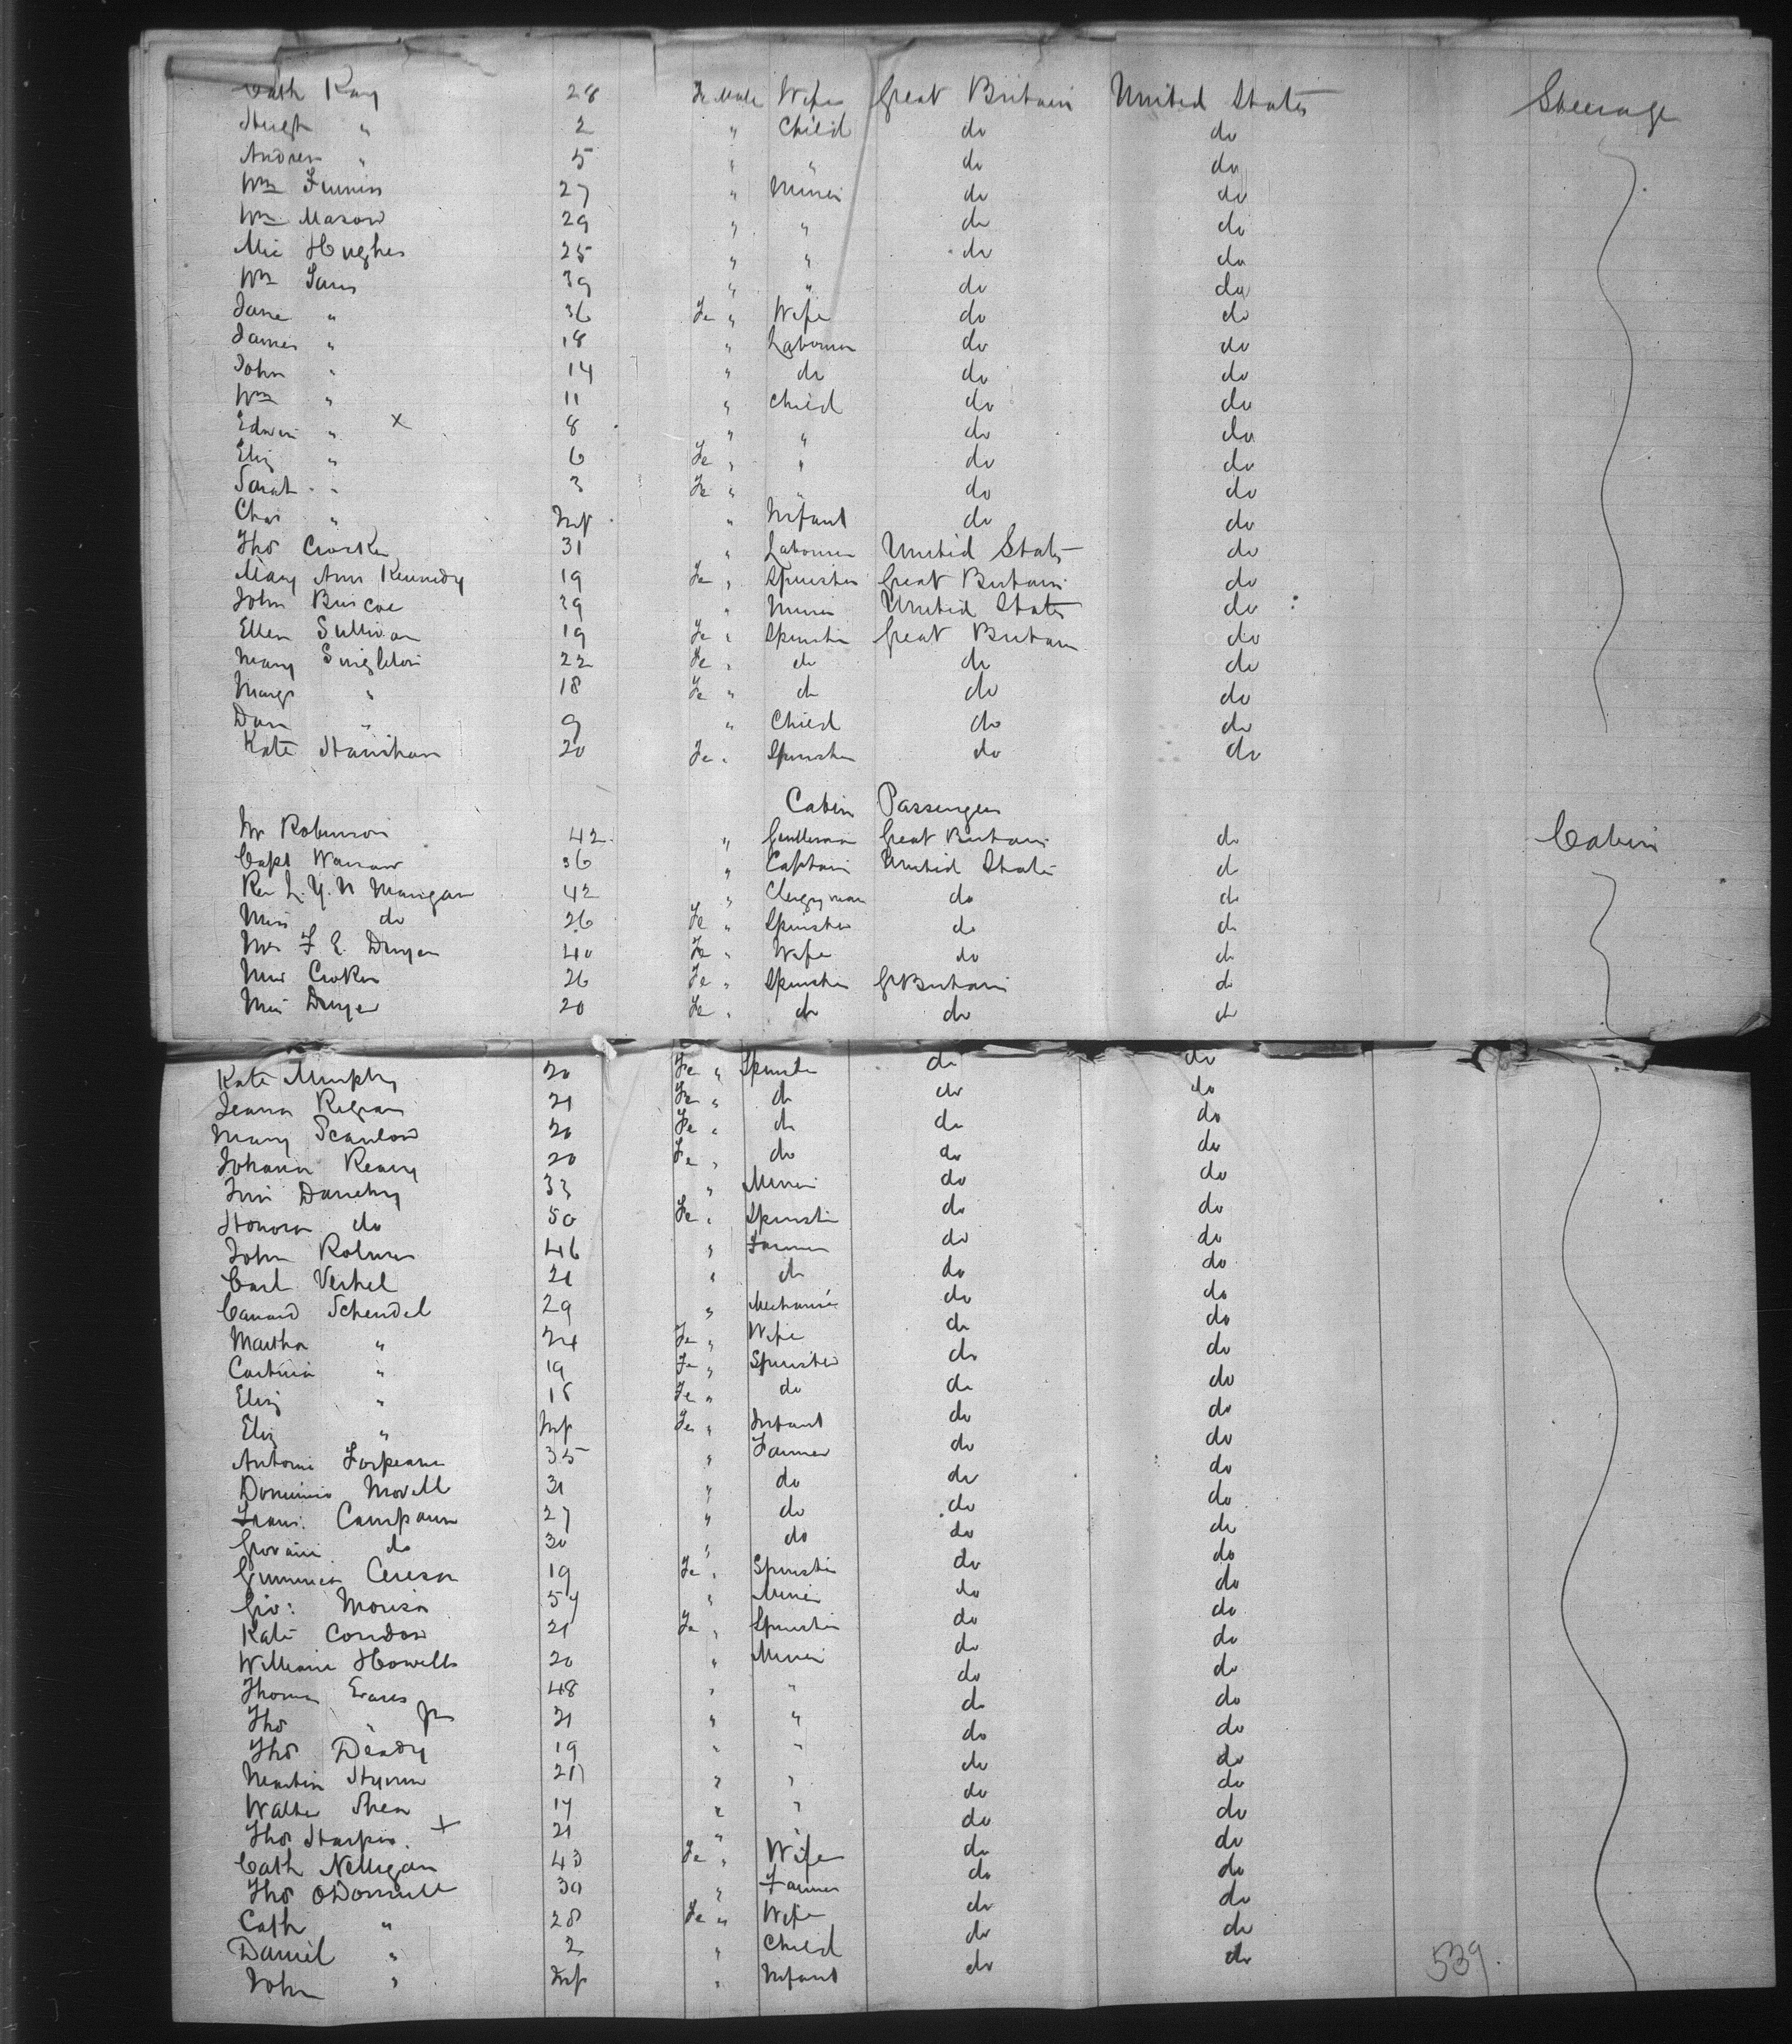 Cath Kay 28 Fe Male Wife Great Britain United States Steerage
Hugh " 2 " Child do do
Andrew " 5 " " do do
Wm 27 " Miner do do
Wm Mason 29 " " do do
Mic Hughes 25 " " do do
Wm 39 " " do do
Jane " 36 Fe " Wife do do
James " 18 " Labourer do do
John " 14 " do do do
Wm " 11 " Child do do
Edwin " x 8 " " do do
Eliz " 6 Fe " " do do
Sarah " 3 Fe " " do do
Chas " Inf " Infant do do
Thos Crocker 31 " Labourer United States do
Mary Ann Kennedy 19 Fe " Spinster Great Britain do
John Briscoe 39 " Miner United States do
Ellen Sullivan 19 Fe " Spinster Great Britain do
Mary Singleton 22 Fe " do do do
Margt " 18 Fe " do do do
Dan " 9 " Child do do
Kate Hanihan 20 Fe " Spinster do do
Cabin Passengers
Mr Robinson 42 " Gentleman Great Britain do Cabin
Capt 36 " Captain United States do
Rev L. Y. N Mangan 42 " Clergyman do do
Miss do 26 Fe " Spinster do do
Mrs F E. Dwyer 40 Fe " Wife do do
Miss Croker 26 Fe " Spinster Gt Britain do
Miss Dwyer 20 Fe " do do do
Kate Murphy 20 Fe " Spinster do do
Regan 21 Fe " do do do
Mary Scanlon 20 Fe " do do do
Johanna 20 Fe " do do do
Danehy 33 " Miner do do
Honora do 50 Fe " Spinster do do
John 46 " Farmer do do
Carl 21 " do do do
Schendel 29 " Mechanic do do
Martha " 24 Fe " Wife do do
" 19 Fe " Spinster do do
Eliz " 18 Fe " do do do
Eliz " Inf Fe " Infant do do
35 " Farmer do do
31 " do do do
27 " do do do
Giovanni do 30 " do do do
19 Fe " Spinster do do
Gio: 54 " Miner do do
Kate Condon 21 Fe " Spinster do do
William Howells 20 " Miner do do
Thomas Evans 48 " " do do
Thos " Jr 21 " " do do
Thos Deady 19 " " do do
Martin " " do do
Walter Shea 17 " " do do
Thos + 21 " " do do
Cath Nelligan 43 Fe " Wife do do
Thos ODonnell 30 " Farmer do do
Cath " 28 Fe " Wife do do
Daniel " 2 " Child do do
John " Inf " Infant do do 539.